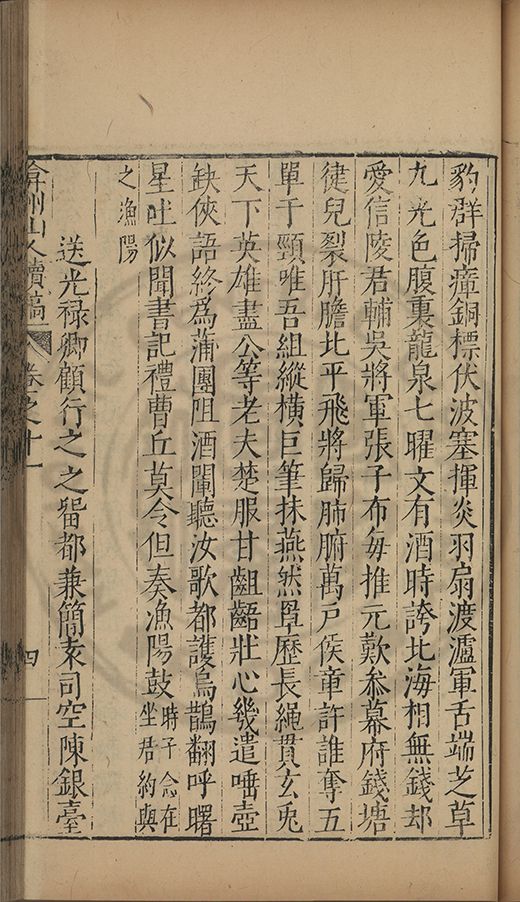 豹群掃瘴銅標伏波塞揮炎羽扇渡瀘軍舌端芝草
九光色腹裏龍泉七曜文有酒時誇北海相無錢却
愛信陵君輔吳將軍張子布每推元歎叅幕府錢塘
健兒裂肝膽北平飛將歸肺腑萬戶侯章許誰奪五
單于頸唯吾組縱橫巨筆抹燕然罩歷長繩貫玄兎
天下英雄盡公等老夫楚服甘齟齬壯心幾遣唾壺
缺俠語終爲蒲團阻酒闌聽汝歌都護烏鵲翻呼曙
星吐似聞書記禮曹丘莫令但奏漁陽鼓時子念在坐君約與
之漁陽
送光禄卿顧行之之留都兼簡袁司空陳銀臺
弇州山人續稿 卷之十一 四